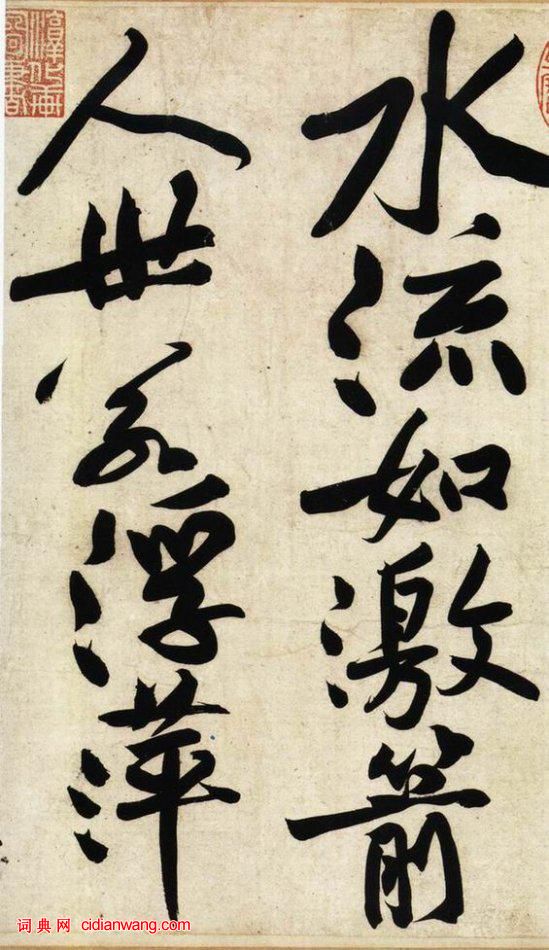 水流如激箭
人世若浮萍
词典网 cidianwang.com